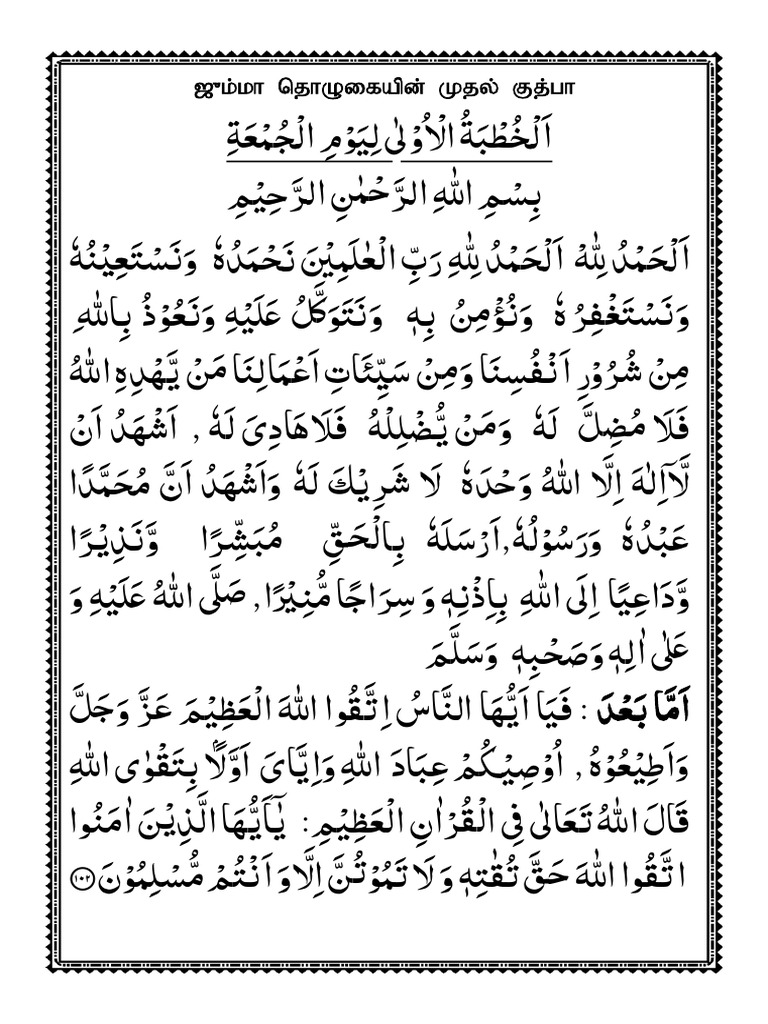 ஜும்மா தொழுகையின் முதல் குத்பா
اَلْخُطْبَةُ الْاُوْلٰى لِيَوْمِ الْجُمْعَةِ
بِسْمِ اللهِ الرَّحْمٰنِ الرَّحِيْمِ
اَلْحَمْدُ لِلّٰهْ اَلْحَمْدُ لِلّٰهِ رَبِّ الْعٰلَمِيْنَ نَحْمَدُهٗ وَنَسْتَعِيْنُهٗ
وَنَسْتَغْفِرُهٗ وَنُؤْمِنُ بِهٖ وَنَتَوَكَّلُ عَلَيْهِ وَنَعُوْذُ بِاللهِ
مِنْ شُرُوْرِ اَنْفُسِنَا وَمِنْ سَيِّئَاتِ اَعْمَالِنَا مَنْ يَّهْدِهِ اللهُ
فَلَا مُضِلَّ لَهٗ وَمَنْ يُّضْلِلْهُ فَلَاهَادِىَ لَهٗ , اَشْهَدُ اَنْ
لَّآاِلٰهَ اِلَّا اللهُ وَحْدَهٗ لَا شَرِيْكَ لَهٗ وَاَشْهَدُ اَنَّ مُحَمَّدًا
عَبْدُهٗ وَرَسُوْلُهٗ,اَرْسَلَهٗ بِالْحَقِّ مُبَشِّرًا وَّنَذِيْرًا
وَّدَاعِيًا اِلَى اللهِ بِاِذْنِهٖ وَ سِرَاجًا مُّنِيْرًا, صَلَّى اللهُ عَلَيْهِ وَ
عَلٰى اٰلِهٖ وَصَحْبِهٖ وَسَلَّمَ
اَمَّا بَعْدَ : فَيَا اَيُّهَا النَّاسُ اِتَّقُوا اللهَ الْعَظِيْمَ عَزَّ وَجَلَّ
وَاَطِيْعُوْهُ , اُوْصِيْكُمْ عِبَادَ اللهِ وَاِيَّاىَ اَوَّلًا بِتَقْوٰى اللهِ
قَالَ اللهُ تَعَالٰى فِى الْقُرْاٰنِ الْعَظِيْمِ: يٰۤاَيُّهَا الَّذِيْنَ اٰمَنُوا
اتَّقُوا اللهَ حَقَّ تُقٰتِهٖ وَلَا تَمُوْتُنَّ اِلَّاوَاَنْتُمْ مُّسْلِمُوْنَ ۝١٠٢